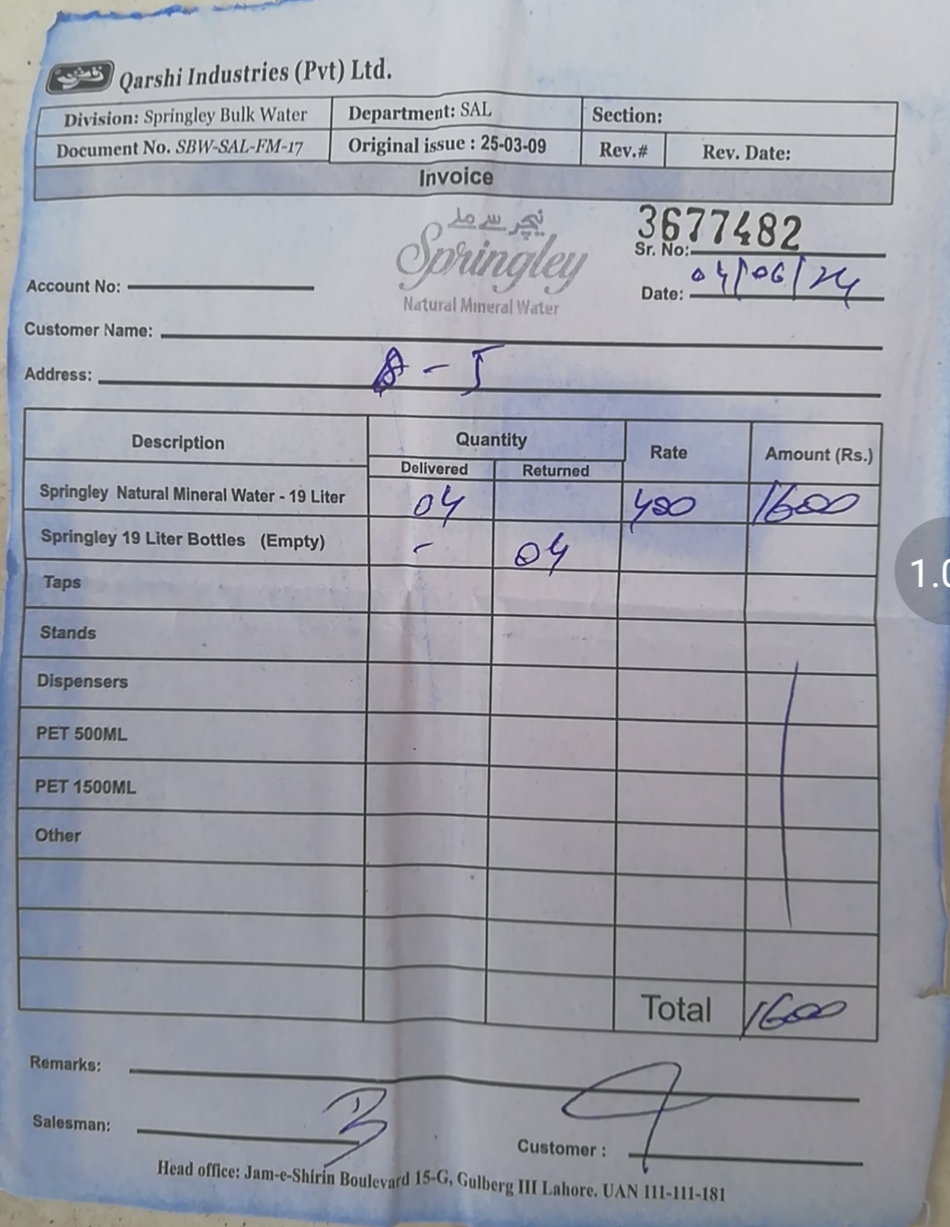 قرشی Qarshi Industries (Pvt) Ltd.
Division: Springley Bulk Water Department: SAL Section:
Document No. SBW-SAL-FM-17 Original issue : 25-03-09 Rev.# Rev. Date:
Invoice
نیچر سے ملے
Springley
Natural Mineral Water
3677482
Sr. No:
Date: 04/06/24
Account No:
Customer Name:
Address:
Description Quantity Rate Amount (Rs.)
Delivered Returned
Springley Natural Mineral Water - 19 Liter 04 400 1600
Springley 19 Liter Bottles (Empty) - 04
Taps
Stands
Dispensers
PET 500ML
PET 1500ML
Other
Total 1600
Remarks:
Salesman:
Customer :
Head office: Jam-e-Shirin Boulevard 15-G, Gulberg III Lahore. UAN 111-111-181
1.0